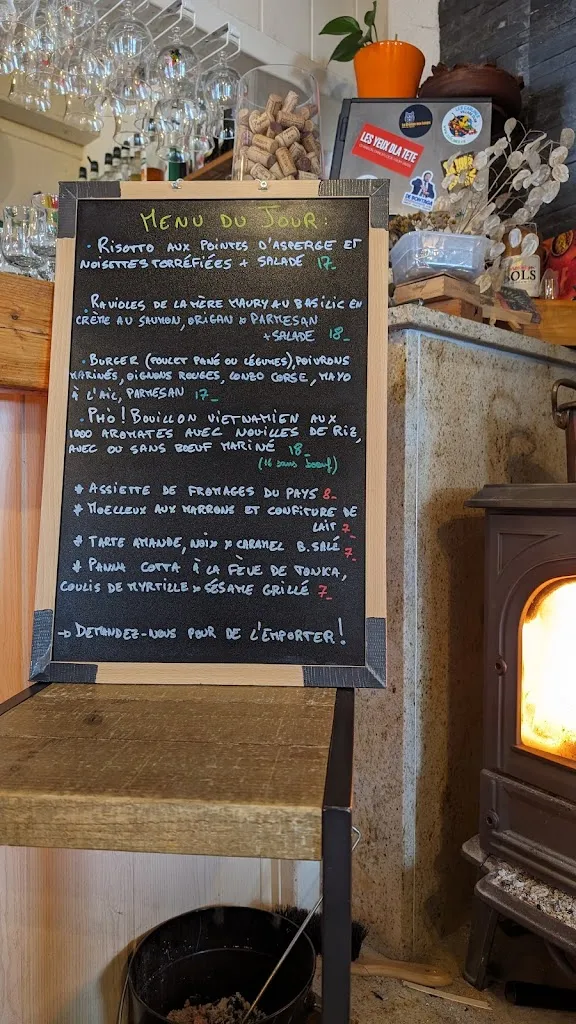 MENU DU JOUR:
· RISOTTO AUX POINTES D'ASPERGE ET
NOISETTES TORRÉFIÉES + SALADE 17_
RAVIOLES DE LA MÈRE MAURY AU BASILIC EN
CRÈME AU SAUMON, ORIGAN & PARMESAN
+ SALADE 18_
· BURGER (POULET PANÉ OU LÉGUMES), POIVRONS
MARINÉS, OIGNONS ROUGES, LONZO CORSE, MAYO
À L'AIL, PARMESAN 17_
· PHÒ! BOUILLON VIETNAMIEN AUX
1000 AROMATES AVEC NOUILLES DE RIZ,
AVEC OU SANS BOEUF MARINÉ 18_
(16 sans boeuf)
* ASSIETTE DE FROMAGES DU PAYS 8_
* MOELLEUX AUX MARRONS ET CONFITURE DE
LAIT 7_
* TARTE AMANDE, NOIX & CARAMEL B. SALÉ 7_
* PANNA COTTA À LA FÈVE DE TONKA,
COULIS DE MYRTILLE & SÉSAME GRILLÉ 7_
→ DEMANDEZ-NOUS POUR DE L'EMPORTER!
LES YEUX DLA TETE
OLS